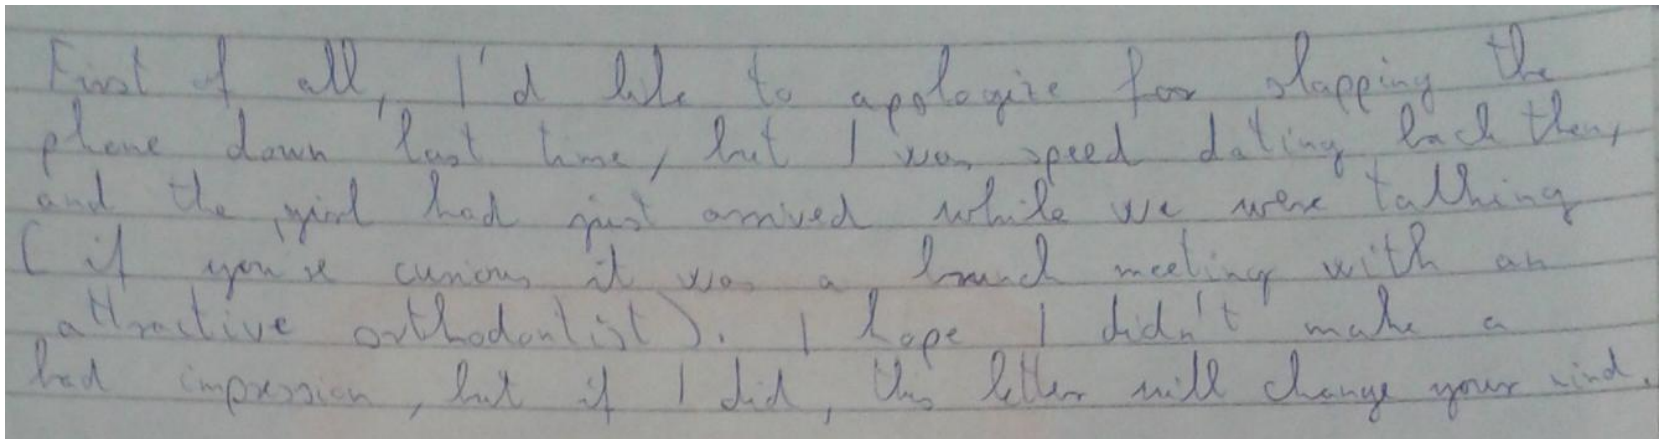 First of all, I'd like to apologize for slapping the
phone down last time, but I was speed dating back then,
and the girl had just arrived while we were talking
(if you're curious it was a brunch meeting with an
attractive orthodontist). I hope I didn't make a
bad impression, but if I did, this letter will change your mind.